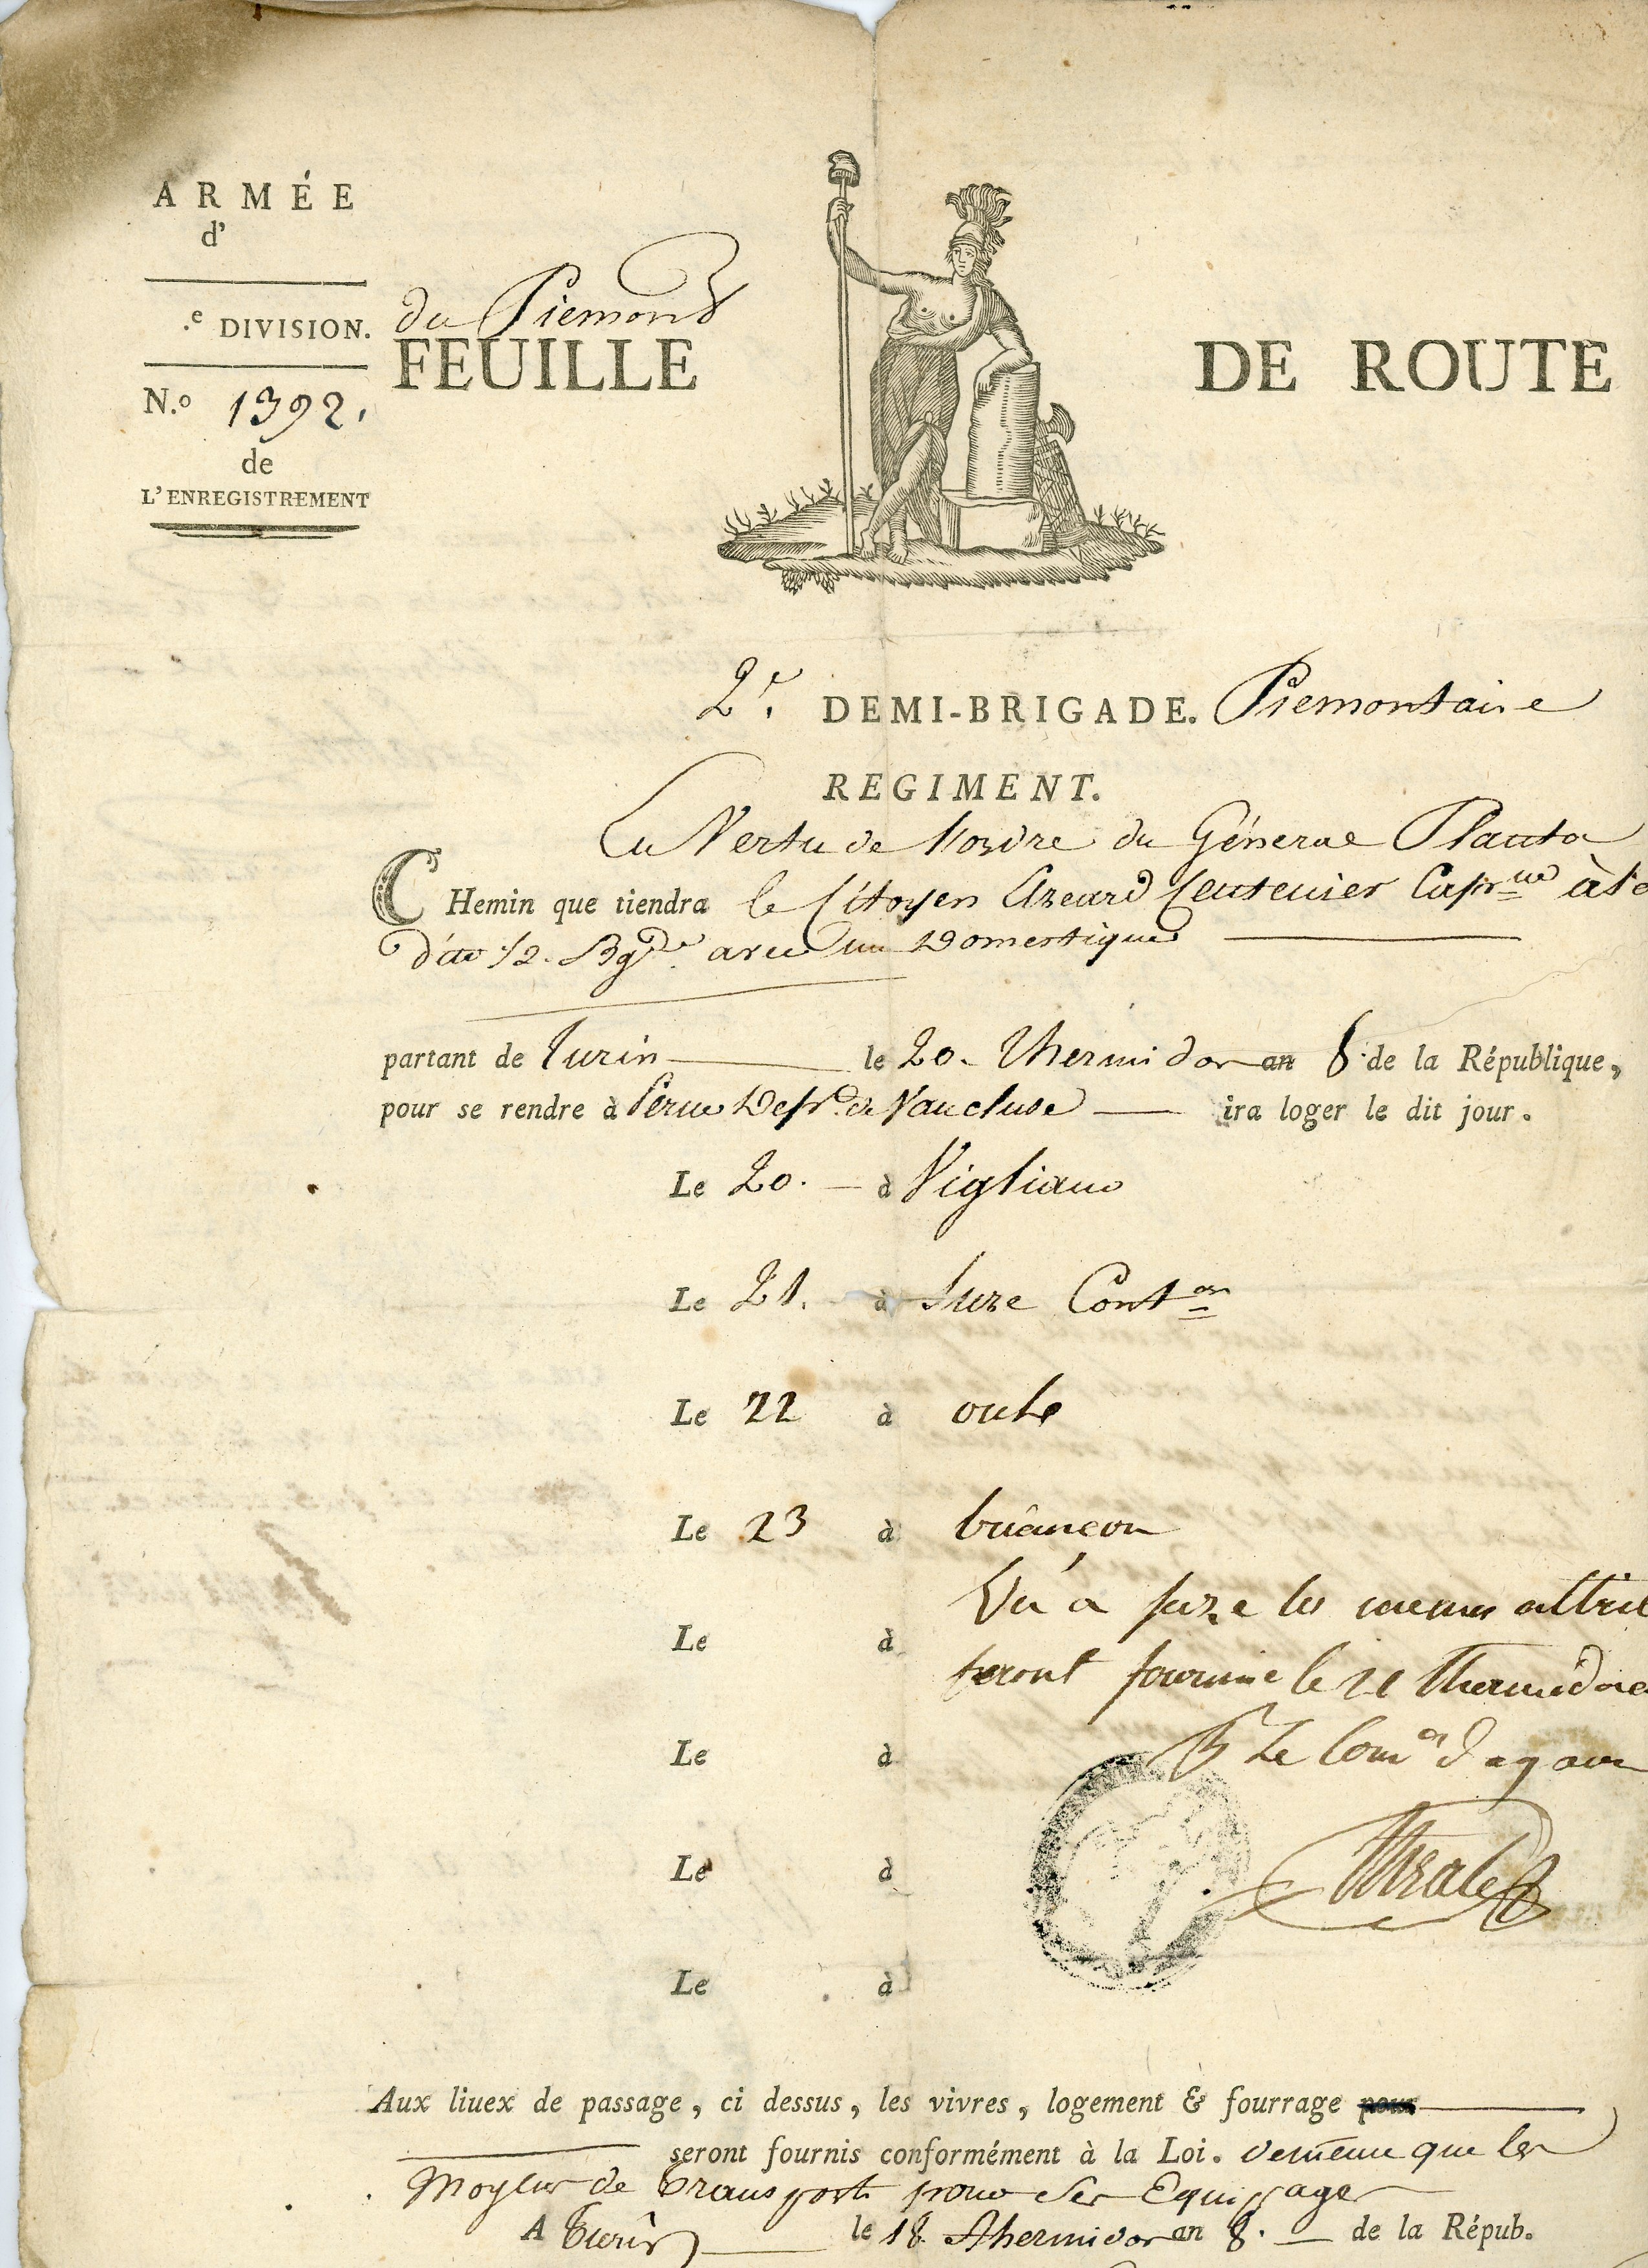 ARMÉE
d'
.e DIVISION. du Piemont
FEUILLE DE ROUTE
N.o 1392.
de
L'ENREGISTREMENT
2.e DEMI-BRIGADE. Piemontaise
REGIMENT.
En Vertu de l'ordre du Géneral Plauta
CHemin que tiendra le Citoyen Capne à la
dite 1/2. Bgde. avec un Domestique
partant de Turin le 20. Thermidor an 8. de la République,
pour se rendre à Perne Dept. de Vaucluse ira loger le dit jour.
Le 20. à Vigliano
Le 21. à Suze Conton
Le 22 à oulx
Le 23 à briançon
Vu a suze les memes
Le à
seront fournie le 21 thermidor
Le à
Le Com
Le à
Le à
Aux liuex de passage, ci dessus, les vivres, logement & fourrage pour
seront fournis conformément à la Loi. de même que les
Moyens de transport pour ses Equipages
A Turin le 18. Thermidor an 8. de la Répub.